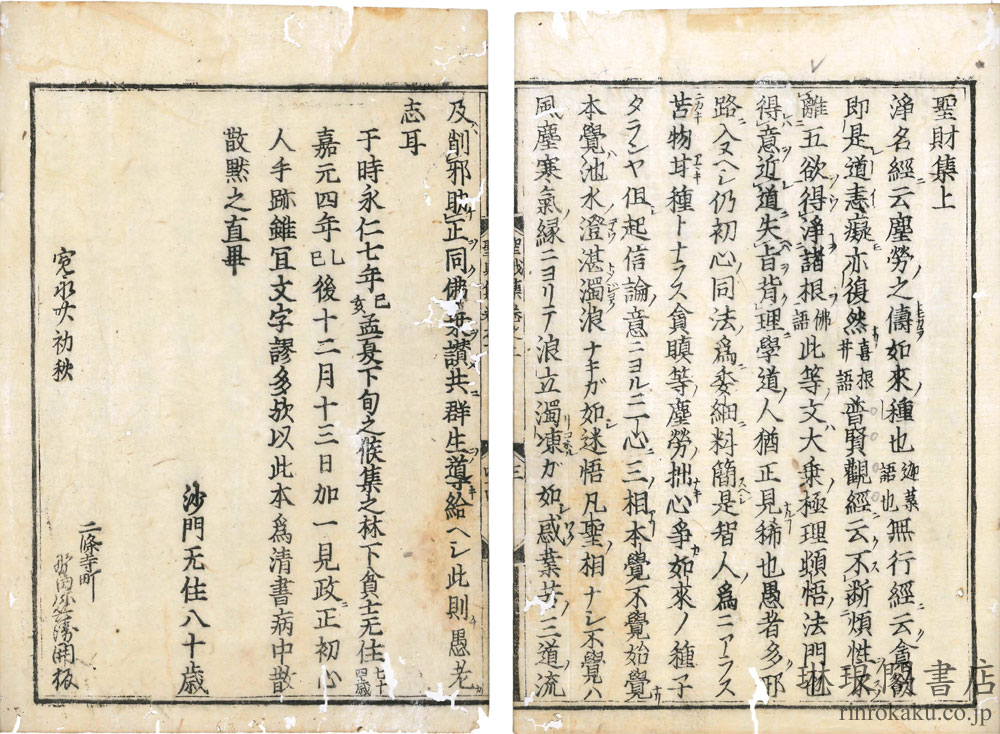 聖財集上
淨名經云塵勞之儔如來種也迦葉語也無行經云貪欲
即是道恚癡亦復然喜根菩薩語普賢觀經云不斷煩惱不
離五欲得淨諸根佛語此等文大乗極理頓悟法門也
得意近道失旨背理學道人猶正見稀也愚者多邪
路入ヌヘシ仍初心同法爲委細料簡是智人爲ニアラス
苦物甘種トナラス貪瞋等塵勞拙心爭如來ノ種子
タランヤ但起信論意ニヨルニ一心三相本覺不覺始覺
本覺池水澄湛濁浪ナキガ如迷悟凡聖相ナシ不覺ハ
風塵寒氣縁ニヨリテ浪立濁凍ガ如惑業苦三道流
及削邪助正同佛共群生導給ヘシ此則愚老
志耳
于時永仁七年己亥孟夏下旬之候集之林下貧士无住七十四歳
嘉元四年後十二月十三日加一見政正初心
人手跡雖冝文字謬多故以此本爲清書病中散
散黙之直畢
沙門无住八十歳
寛永廿初秋
二條寺町
開板
琳琅閣書店
rinrokaku.co.jp